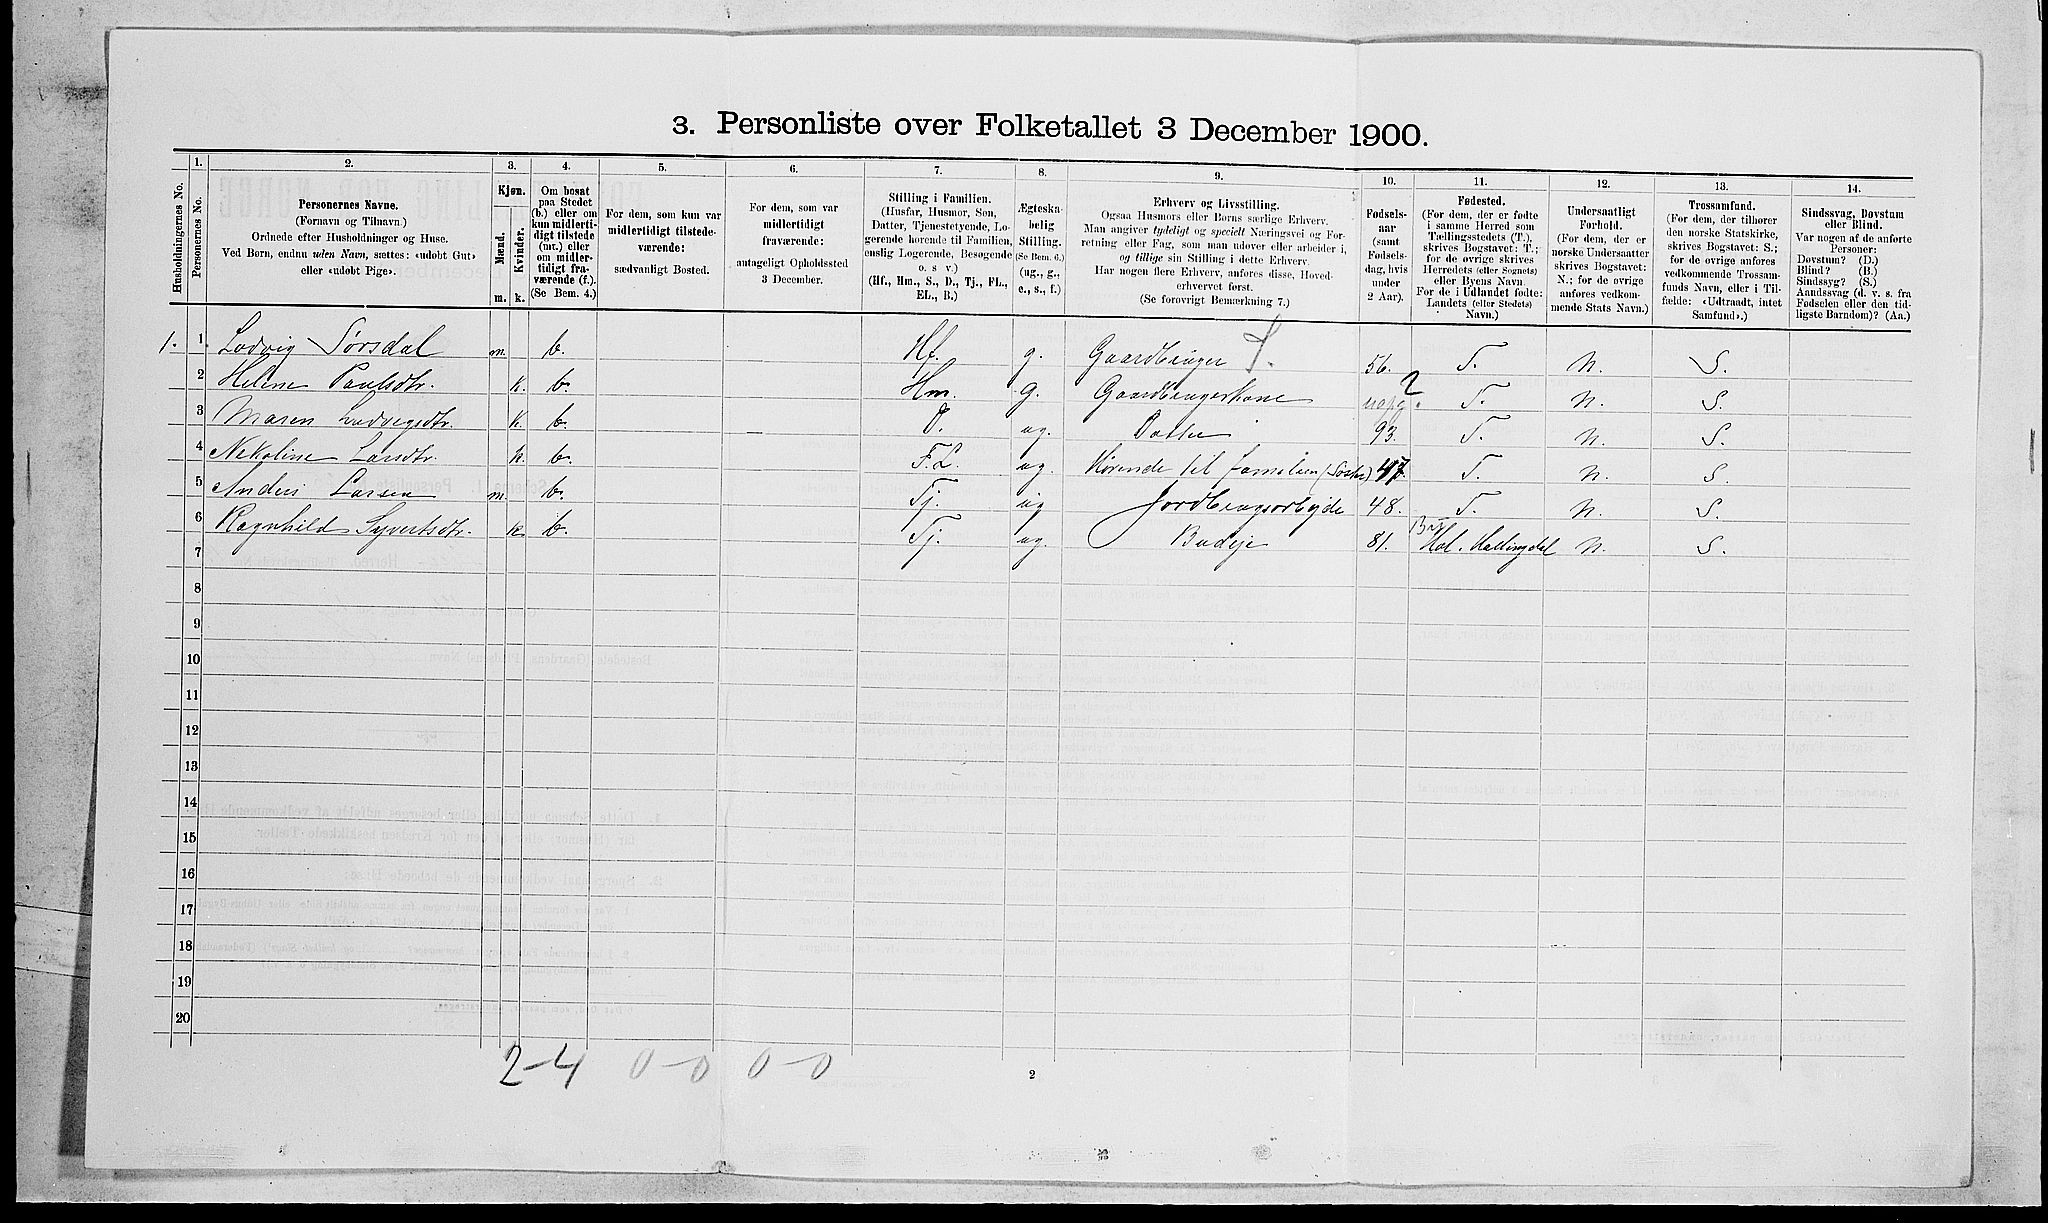 3. Personliste over Folketallet 3 December 1900.
Husholdningernes No.
1.
Personernes No.
2.
Personernes Navne.
(Fornavn og Tilnavn.)
Ordnede efter Husholdninger og Huse.
Ved Børn, endnu uden Navn, sættes: «udøbt Gut»
eller «udøbt Pige».
3.
Kjøn.
Mænd.
Kvinder.
m. k.
4.
Om bosat
paa Stedet
(b.) eller om
kun midlerti-
digt tilstede
(mt.) eller
om midler-
tidigt fra-
værende (f.).
(Se Bem. 4.)
5.
For dem, som kun var
midlertidigt tilstede-
værende:
sædvanligt Bosted.
6.
For dem, som var
midlertidigt
fraværende:
antageligt Opholdssted
3 December.
7.
Stilling i Familien.
(Husfar, Husmor, Søn,
Datter, Tjenestetyende, Lo-
gerende hørende til Familien,
enslig Logerende, Besøgende
o. s. v.)
(Hf., Hm., S., D., Tj., FL.,
EL., B.)
8.
Ægteska-
belig
Stilling.
(Se Bem. 6.)
(ug., g.,
e., s., f.)
9.
Erhverv og Livsstilling.
Ogsaa Husmors eller Børns særlige Erhverv.
Man angiver tydeligt og specielt Næringsvei og For-
retning eller Fag, som man udøver eller arbeider i,
og tillige sin Stilling i dette Erhverv.
Har nogen flere Erhverv, anføres disse, Hoved-
erhvervet først.
(Se forøvrigt Bemærkning 7.)
10.
Fødsels-
aar
(samt
Fødsels-
dag, hvis
under
2 Aar).
11.
Fødested.
(For dem, der er fødte
i samme Herred som
Tællingsstedets (T.),
skrives Bogstavet: T.;
for de øvrige skrives
Herredets (eller Sognets)
eller Byens Navn.
For de i Udlandet fødte:
Landets (eller Stedets)
Navn.)
12.
Undersaatligt
Forhold.
(For dem, der er
norske Undersaatter
skrives Bogstavet:
N.; for de øvrige
anføres vedkom-
mende Stats Navn.)
13.
Trossamfund.
(For dem, der tilhører
den norske Statskirke,
skrives Bogstavet: S.;
for de øvrige anføres
vedkommende Trossam-
funds Navn, eller i Til-
fælde: «Udtraadt, intet
Samfund».)
14.
Sindssvag, Døvstum
eller Blind.
Var nogen af de anførte
Personer:
Døvstum? (D.)
Blind? (B.)
Sindssyg? (S.)
Aandssvag (d. v. s. fra
Fødselen eller den tid-
ligste Barndom)? (Aa.)
1. 1 Lodvig Sørsdal m. b. Hf. g. Gaardbruger S. 56. T. N. S.
2 Helene Paulsdtr. k. b. Hm. g. Gaardbrugerkone ? T. N. S.
3 Maren Ludvigsdtr. k. b. D. ug. Datter 93. T. N. S.
4 Nekoline Larsdtr. k. b. F.L. ug. Hørende til familien (Søster) 47. T. N. S.
5 Anders Larsen m. b. Tj. ug Jordbrugsarbejde 48. T. N. S.
6 Ragnhild Syvertsdtr. k. b. Tj. ug. Budeje 81. Hol. Hallingdal N. S.
7
8
9
10
11
12
13
14
15
16
17
18
19
20
2-4 0-0 0-0
2